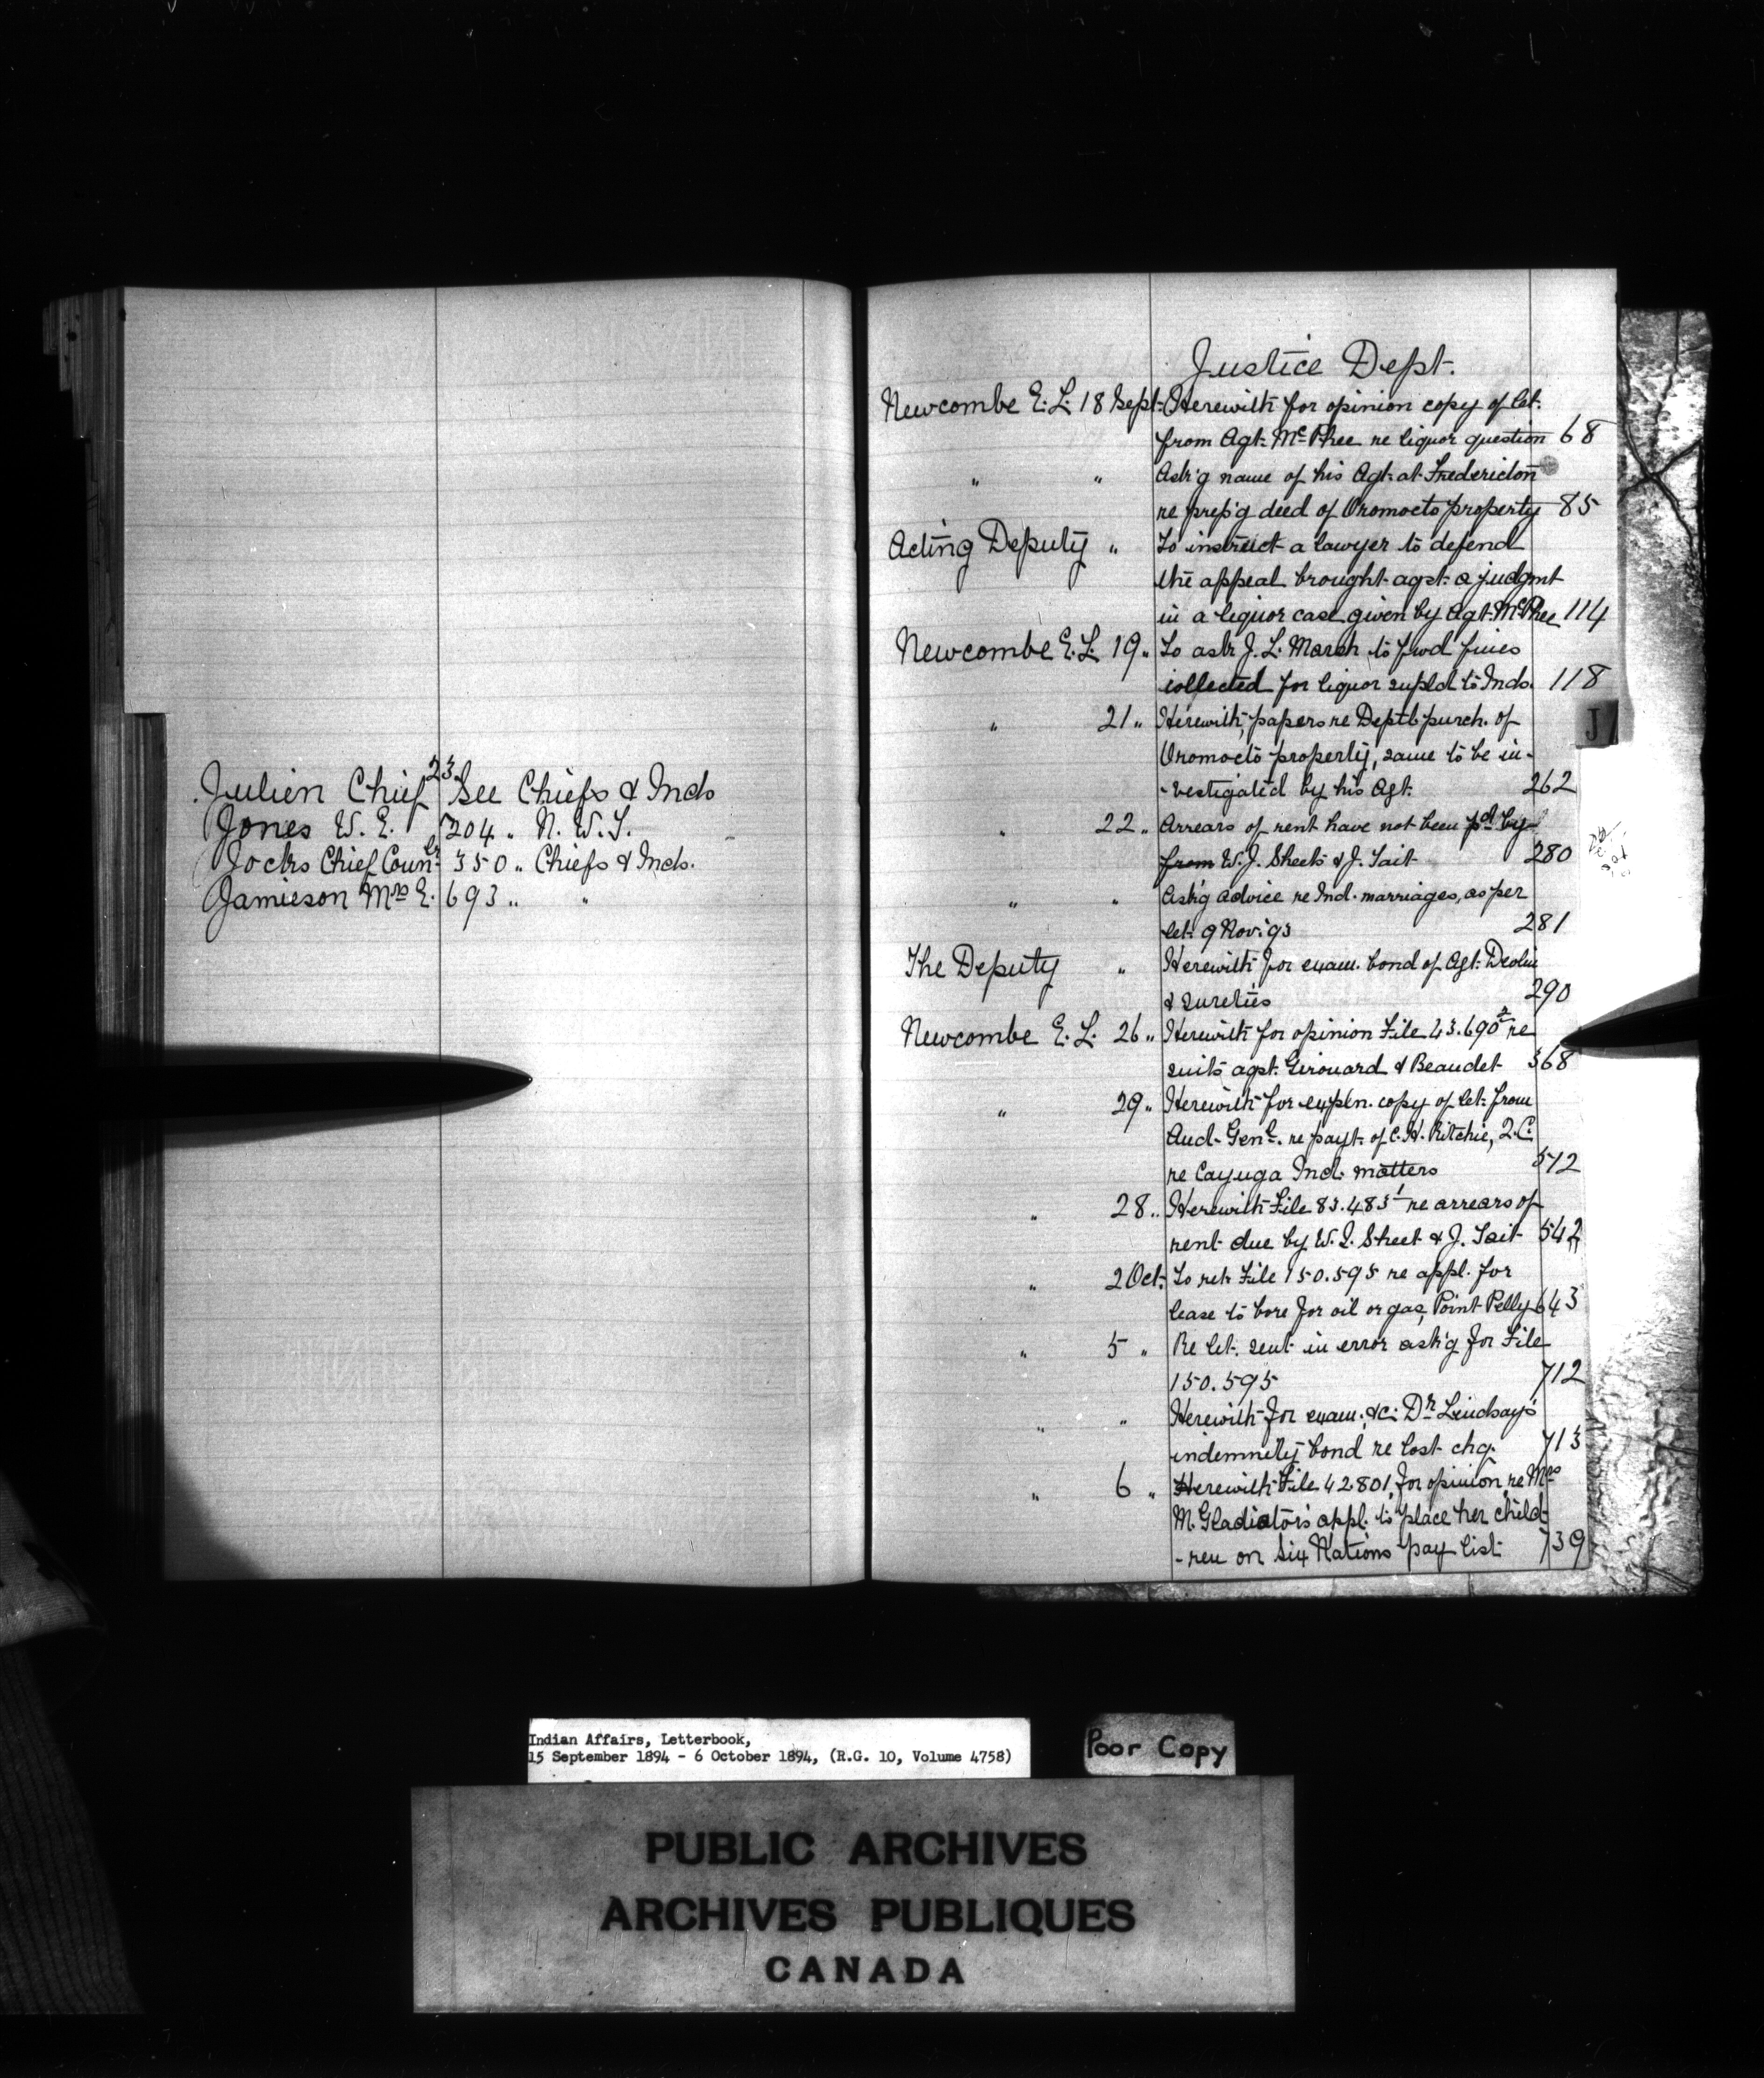 Julien Chief 23 See Chiefs & Inds
Jones W. E. 204 " N. W. T.
Jocks Chief Counlr 350 " Chiefs & Inds.
Jamieson Mrs E. 693 " "
Justice Dept.
Newcombe E. L. 18 Sept. Herewith for opinion copy of let.
from Agt. McPhee re liquor question 68
" " Ask'g name of his Agt. at Fredericton
re prep'g deed of Oromocto property 85
Acting Deputy " To instruct a lawyer to defend
the appeal brought agst. a judgmt
in a liquor case given by Agt. McPhee 114
Newcombe E. L. 19 " To ask J. L. Marsh to fwd fines
collected for liquor supld to Inds. 118
" 21 " Herewith, papers re Deptl purch. of
Oromocto property, same to be in-
-vestigated by his Agt. 262
" 22 " Arrears of rent have not been pd by
from W. J. Sheets & J. Tait 280
" " Ask'g advice re Ind. marriages, as per
let. 9 Nov. 93 281
The Deputy " Herewith for exam. bond of Agt.
& sureties 290
Newcombe E. L. 26 " Herewith for opinion File 43.690 re
suits agst. Girouard & Beaudet 368
" 29 " Herewith for expln. copy of let. from
Aud. Genl. re payt. of C. H. Ritchie, Q.C.
re Cayuga Ind. matters 572
" 28 " Herewith File 83.483 1 re arrears of
rent due by W. J. Sheet & J. Tait 542
" 2 Oct. To retn File 150.595 re appl. for
lease to bore for oil or gas, Point Pelly 643
" 5 " Re let. sent in error ask'g for File
150.595 712
" " Herewith for exam. &c. Dr Lindsay's
indemnity bond re lost chq. 713
" 6 " Herewith File 42801, for opinion re Mrs
M. Gladiator's appl. to place her child-
-ren on Six Nations pay list 739
J
Indian Affairs, Letterbook,
15 September 1894 - 6 October 1894, (R.G. 10, Volume 4758)
Poor Copy
PUBLIC ARCHIVES
ARCHIVES PUBLIQUES
CANADA